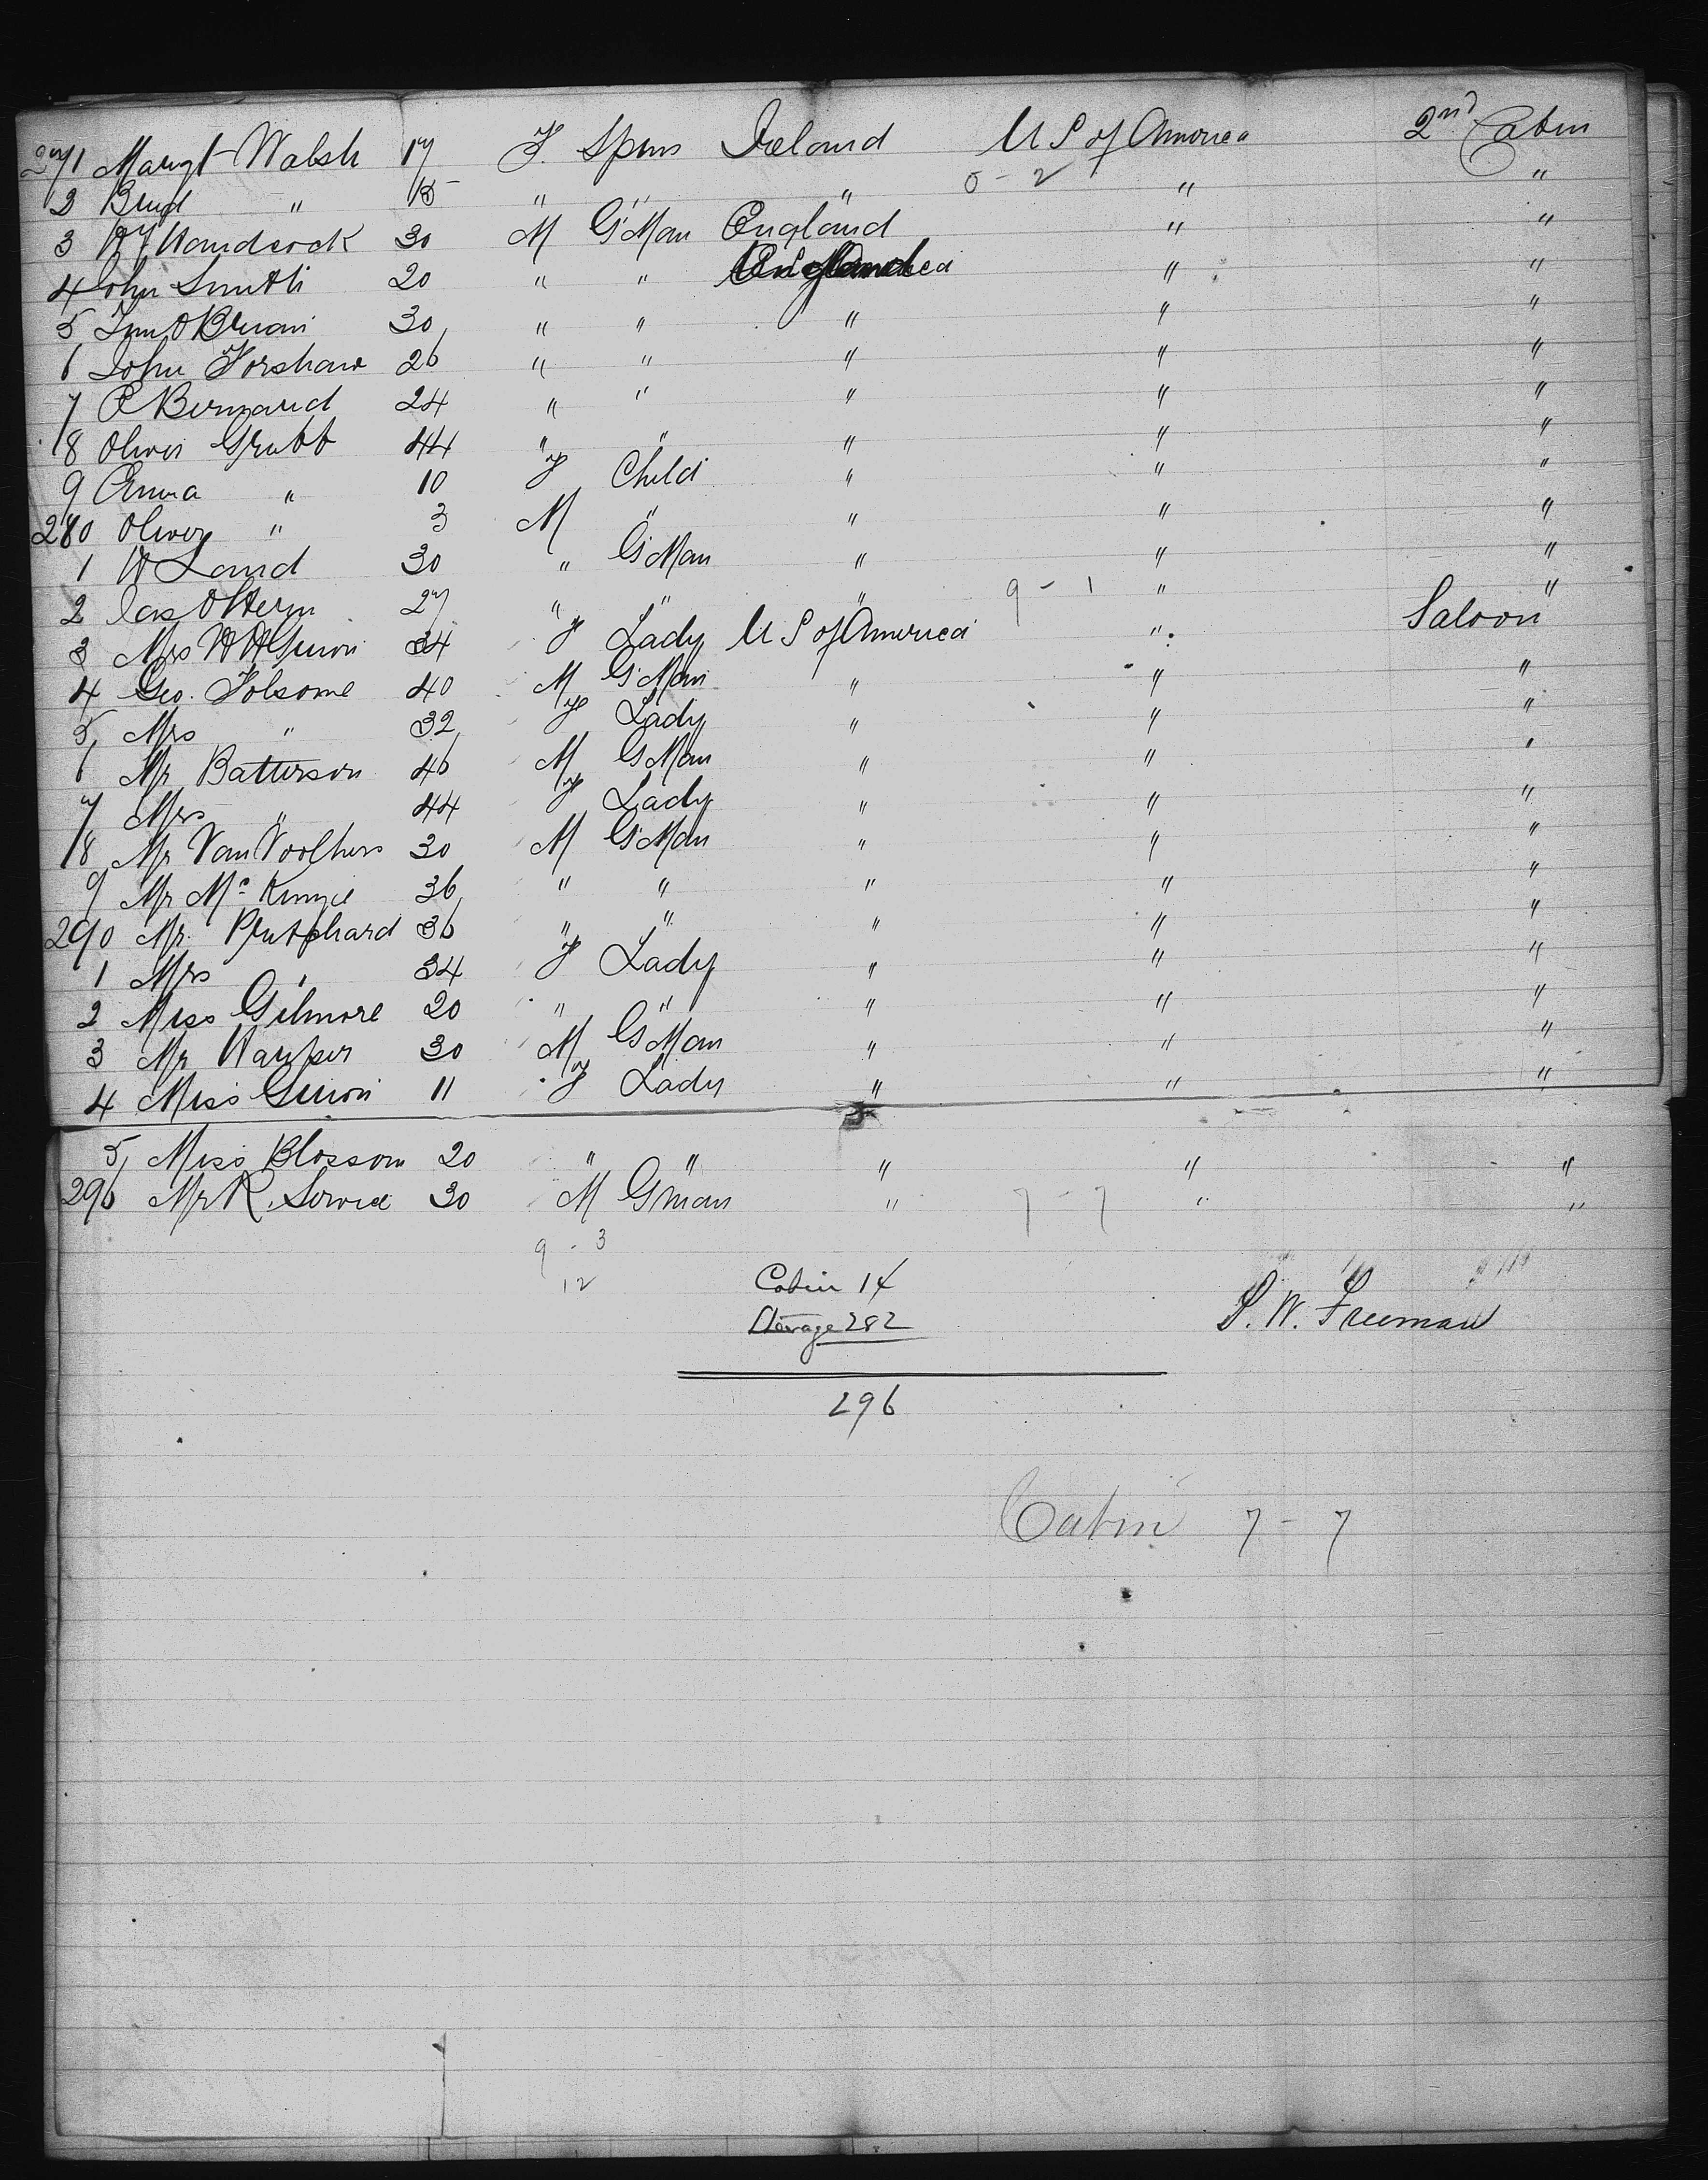 271 Margt Walsh 17 F. Spins Ireland U S of America 2nd Cabin
2 Brid " 15 " " " 0 - 2 " "
3 Wm Handcock 30 M G'Man England " "
4 John Smith 20 " " England " "
5 Tim OBrien 30 " " " " "
6 John Forshaw 26 " " " " "
7 C Bernard 24 " " " " "
8 Oliver Grubb 44 " " " " "
9 Anna " 10 F Child " " "
280 Oliver " 3 M " " " "
1 W Land 30 " G'Man " " "
2 Jas OHern 27 " " " 9 - 1 " "
3 Mrs W H Guion 34 F Lady U S of America " Saloon
4 Geo. Folsome 40 M G'Man " " "
5 Mrs " 32 F Lady " " "
6 Mr Batterson 46 M G'Man " " "
7 Mrs " 44 F Lady " " "
8 Mr Van 30 M G'Man " " "
9 Mr Mc Kenzie 36 " " " " "
290 Mr. Prutphard 36 " " " " "
1 Mrs " 34 F Lady " " "
2 Miss Gilmore 20 " " " " "
3 Mr Harper 30 M G'Man " " "
4 Miss Guion 11 F Lady " " "
5 Miss Blossom 20 " " " " "
296 Mr R. Service 30 M Gman " 7 - 7 " "
9 - 3
12
Cabin 14
Steerage 282
S. W. Freeman
296
Cabin 7 - 7